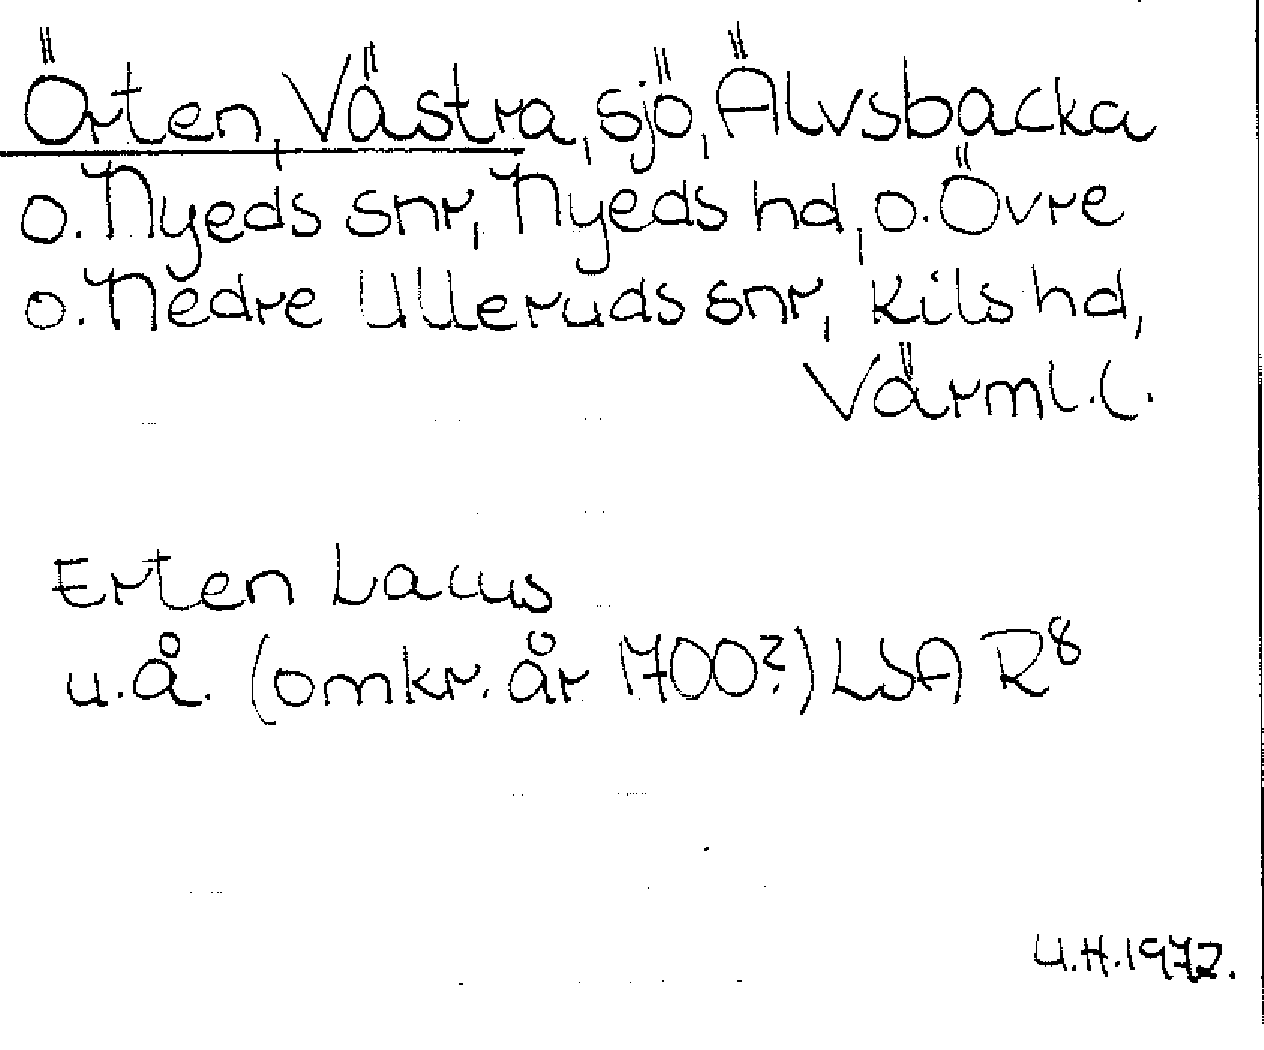 Örten, Västra, sjö, Älvsbacka
o. Nyeds snr, Nyeds hd, o. Övre
o. Nedre Ulleruds snr, Kils hd,
Värml. l.
Erten Lacus
u.å. (omkr. år 1700?) LSA R8
U.H. 1972.